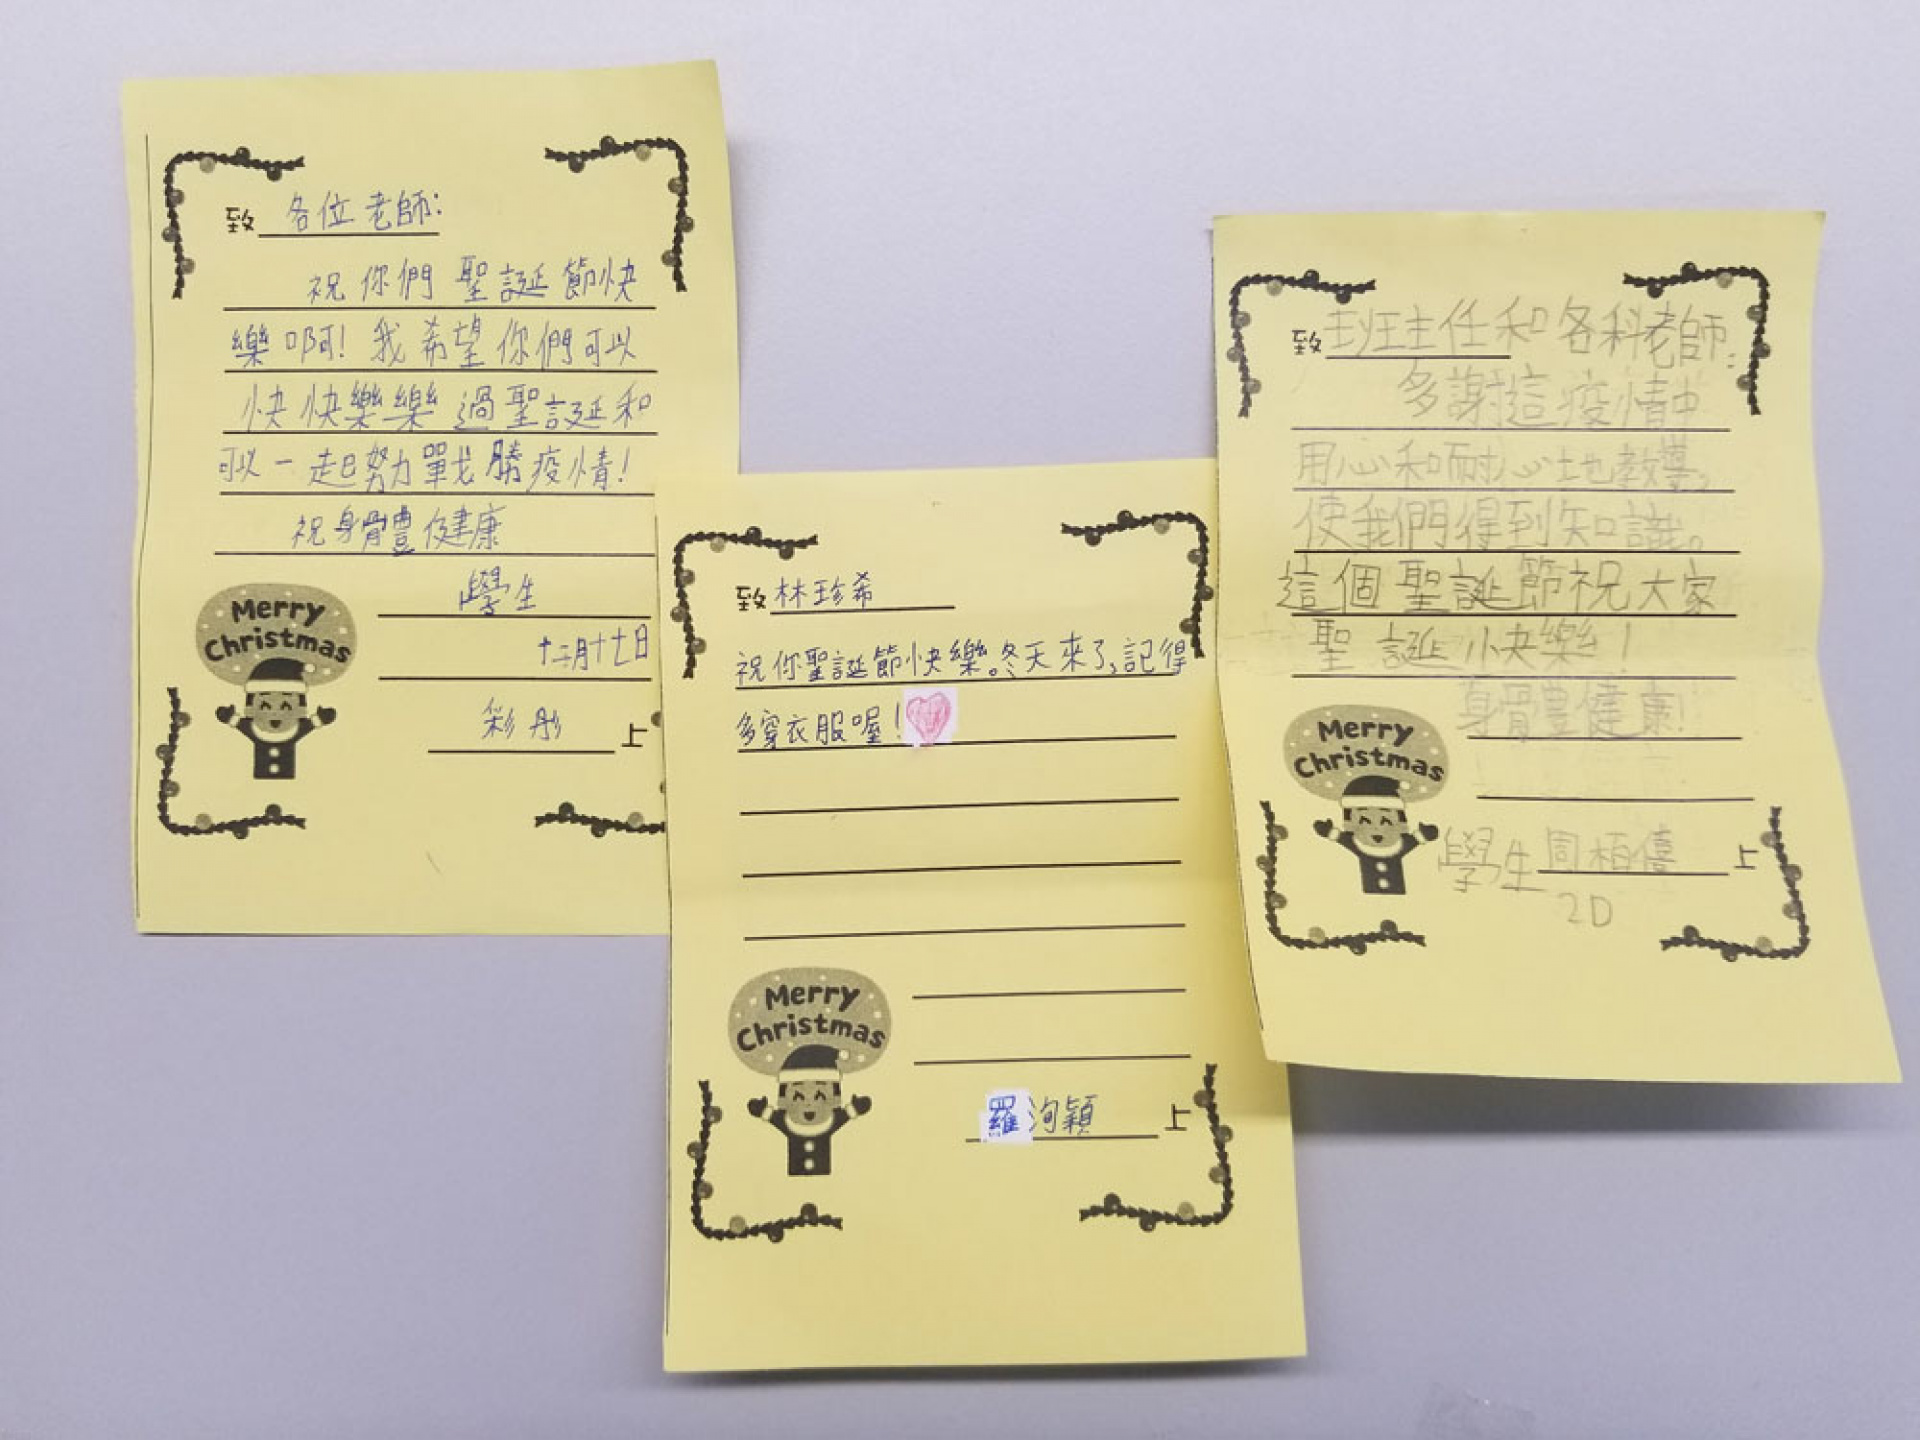 致 各位老師:
祝你們聖誕節快
樂啊!我希望你們可以
快快樂樂過聖誕和
可以一起努力戰勝疫情!
祝身體健康
學生
十二月十七日
彩彤 上
Merry
Christmas
致 林珍希
祝你聖誕節快樂。冬天來了,記得
多穿衣服喔!
Merry
Christmas
羅洵穎 上
致 班主任和各科老師:
多謝這疫情中
用心和耐心地教導,
使我們得到知識。
這個聖誕節祝大家
聖誕快樂!
身體健康!
Merry
Christmas
學生 周栢僖 上
2D